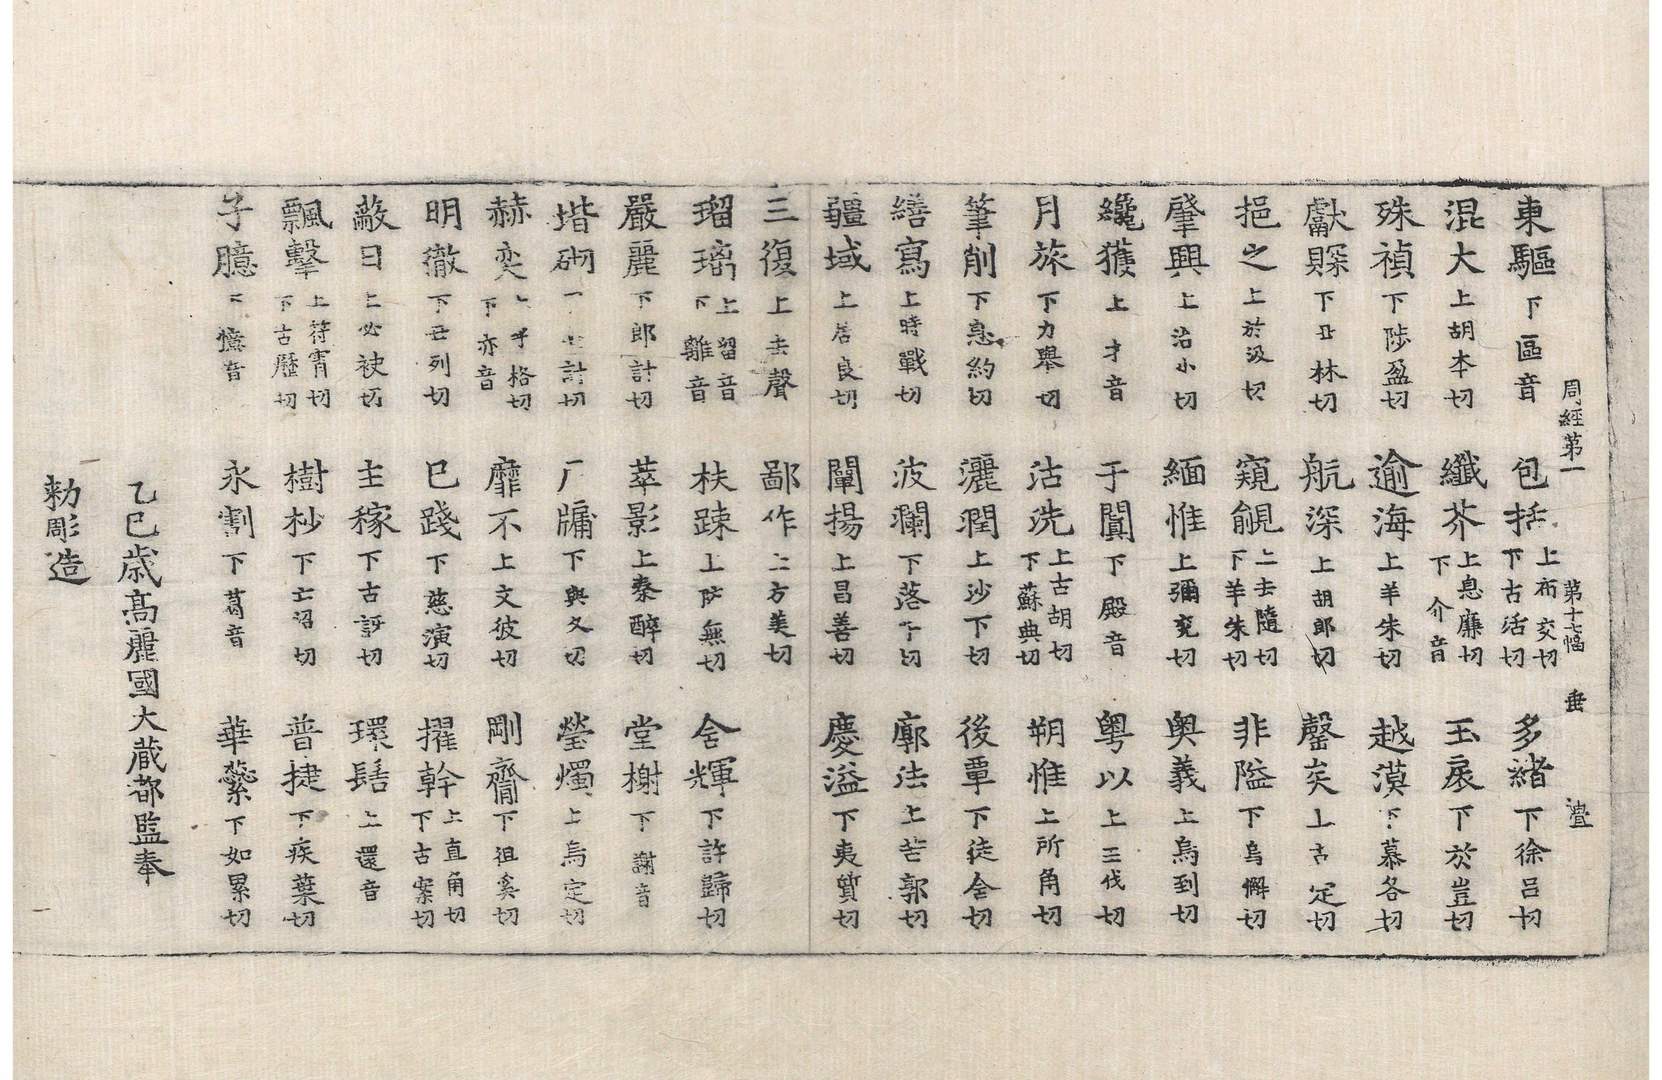 周經第一 第十七幅 垂 
東驅下區音 包括上布交切下古活切 多緒下徐呂切
混大上胡本切 纖芥上息廉切下介音 玉扆下於豈切
殊禎下陟盈切 逾海上羊朱切 越漠下慕各切
獻賝下丑林切 航深上胡郎切 罄矣上苦定切
挹之上於汲切 窺覦上去隨切下羊朱切 非隘下烏懈切
肇興上治小切 緬惟上彌兖切 奧義上烏到切
纔獲上才音 于闐下殿音 粤以上王伐切
月旅下力舉切 沽洗上古胡切下蘇典切 朔惟上所角切
筆削下息約切 灑潤上沙下切 後覃下徒含切
繕寫上時戰切 波瀾下落干切 廓法上苦郭切
疆域上居良切 闡揚上昌善切 慶溢下夷質切
三復上去聲 鄙作上方美切
瑠璃上留音下離音 扶踈上防無切 含輝下許歸切
嚴麗下郎計切 萃影上秦醉切 堂榭下謝音
堦砌下七計切 戶牖下與久切 瑩燭上烏定切
赫奕上呼格切下亦音 靡不上文彼切 剛齎下祖奚切
明徹下丑列切 已踐下慈演切 擢幹上直角切下古案切
蔽日上必袂切 主稼下古訝切 環髻上還音
飄擊上符宵切下古歷切 樹杪下亡沼切 普捷下疾葉切
子臆下憶音 永割下葛音 華蘂下如累切
乙巳歲高麗國大藏都監奉
勅彫造